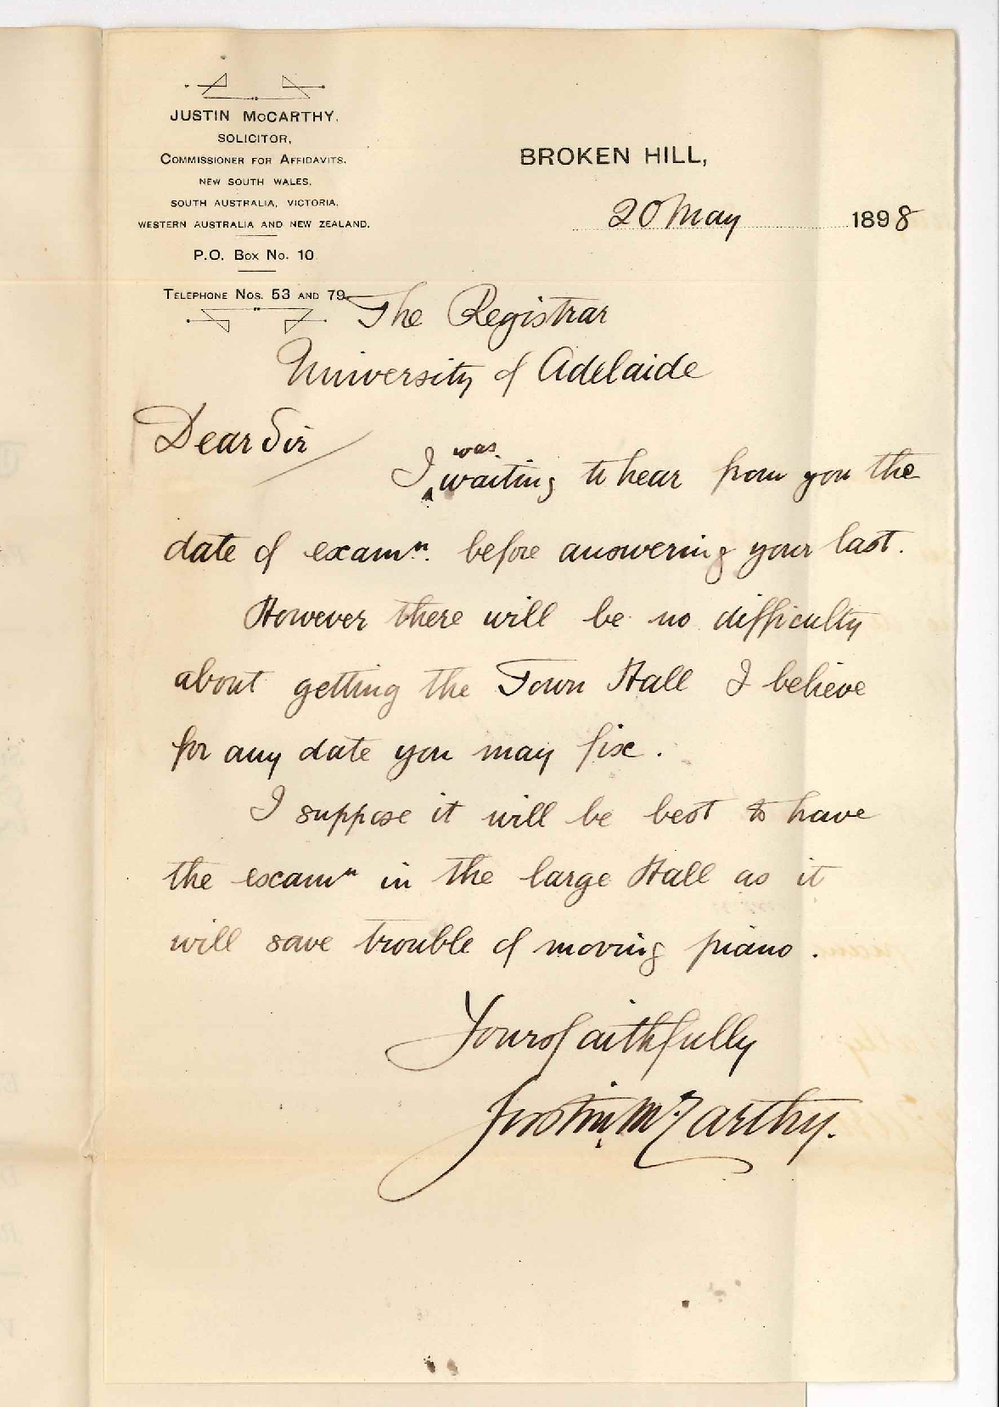 JUSTIN McCARTHY.
SOLICITOR,
COMMISSIONER FOR AFFIDAVITS.
NEW SOUTH WALES.
SOUTH AUSTRALIA, VICTORIA.
WESTERN AUSTRALIA AND NEW ZEALAND.
P.O. Box No. 10
TELEPHONE NOS. 53 AND 79.
BROKEN HILL,
20 May 1898
The Registrar
University of Adelaide
Dear Sir
I was waiting to hear from you the
date of examn. before answering your last.
However there will be no difficulty
about getting the Town Hall I believe
for any date you may fix.
I suppose it will be best to have
the examn in the large Hall as it
will save trouble of moving piano.
Yours faithfully
Justin McCarthy.